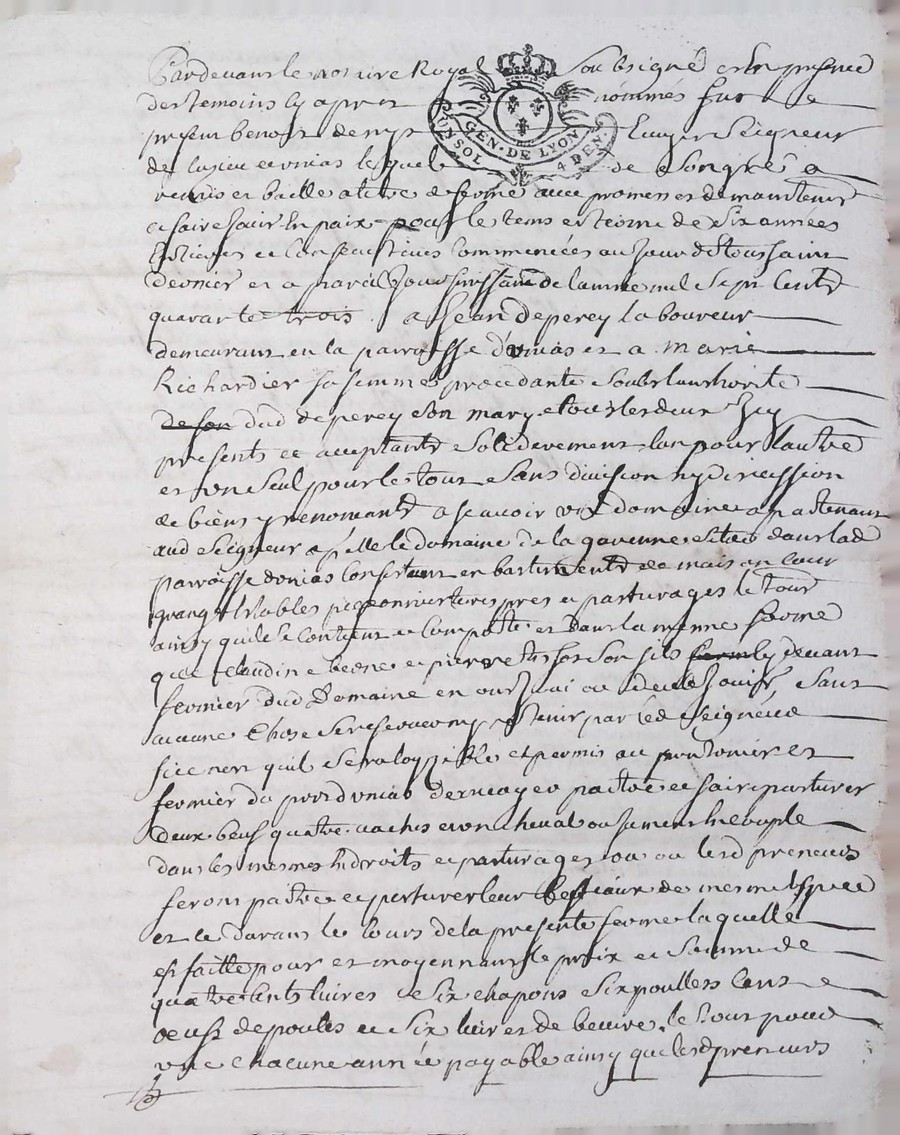 Pardevant le notaire Royal soubsigné et en presence
des temoins cy apres nommés fut
present benoit denys Ecuyer Seigneur
UN SOL GEN. DE LYON 4 DEN.
de et unias lequel de son gré a
remis et baille a titre de ferme avec promesses de maintenir
et faire jouir en paix pour le tems et terme de six années
Entieres et Consecutives Commencées au jour de toussaint
dernier et a pareil jour finissant de lannee mil sept Cents
quarante trois a Jean deperey laboureur
demeurant en la parroisse d'unias et a marie
Richardier sa femme procedante soubs lauthorité
de son dud deperey son mary et tous les deux Icy
presents et acceptants solidairement lun pour lautre
et un seul pour le tout sans division ny discussion
de biens y renoncants a scavoir un domaine apartenant
aud seigneur apellé le domaine de la garenne situé dans lad
parroisse dunias Consistant en batiments de maison cour
grange Estables pigeonnier terres pres et pasturages le tout
ainsy quil se Contient et Comporte et dans la mesme forme
que claudine et pierre son fils cy devant
fermier dud Domaine en ont joui ou deub jouir, sans
aucune Chose se reserver ny retenir par led seigneur
si ce nest quil sera loisible et permis au et
fermier du port dunias de paitre et faire pasturer
deux beufs quatre vaches et un cheval ou jument
dans les mesmes Endroits et pasturages ou lesd preneurs
feront paitre et pasturer leur bestiaux de mesme Espece
et ce durant le cours de la presente ferme laquelle
est faitte pour et moyennant le prix et somme de
quatre cents livres et six chapons six poullets cent
oeufs de poules et six livres de beurre, le tout pour
une chacune année payable ainsy que lesd preneurs